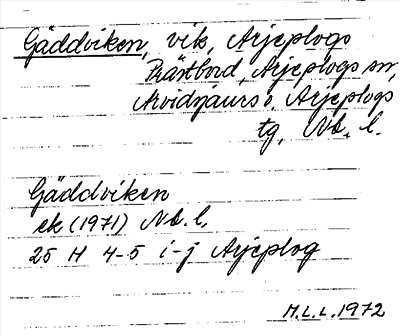 Gäddviken, vik, Arjeplogs
Prästbord, Arjeplogs sn,
Arvidsjaurs o. Arjeplogs
tg, Nb. l.
Gäddviken
ek (1971) Nb. l.
25 H 4-5 i-j Arjeplog
M.L.L. 1972